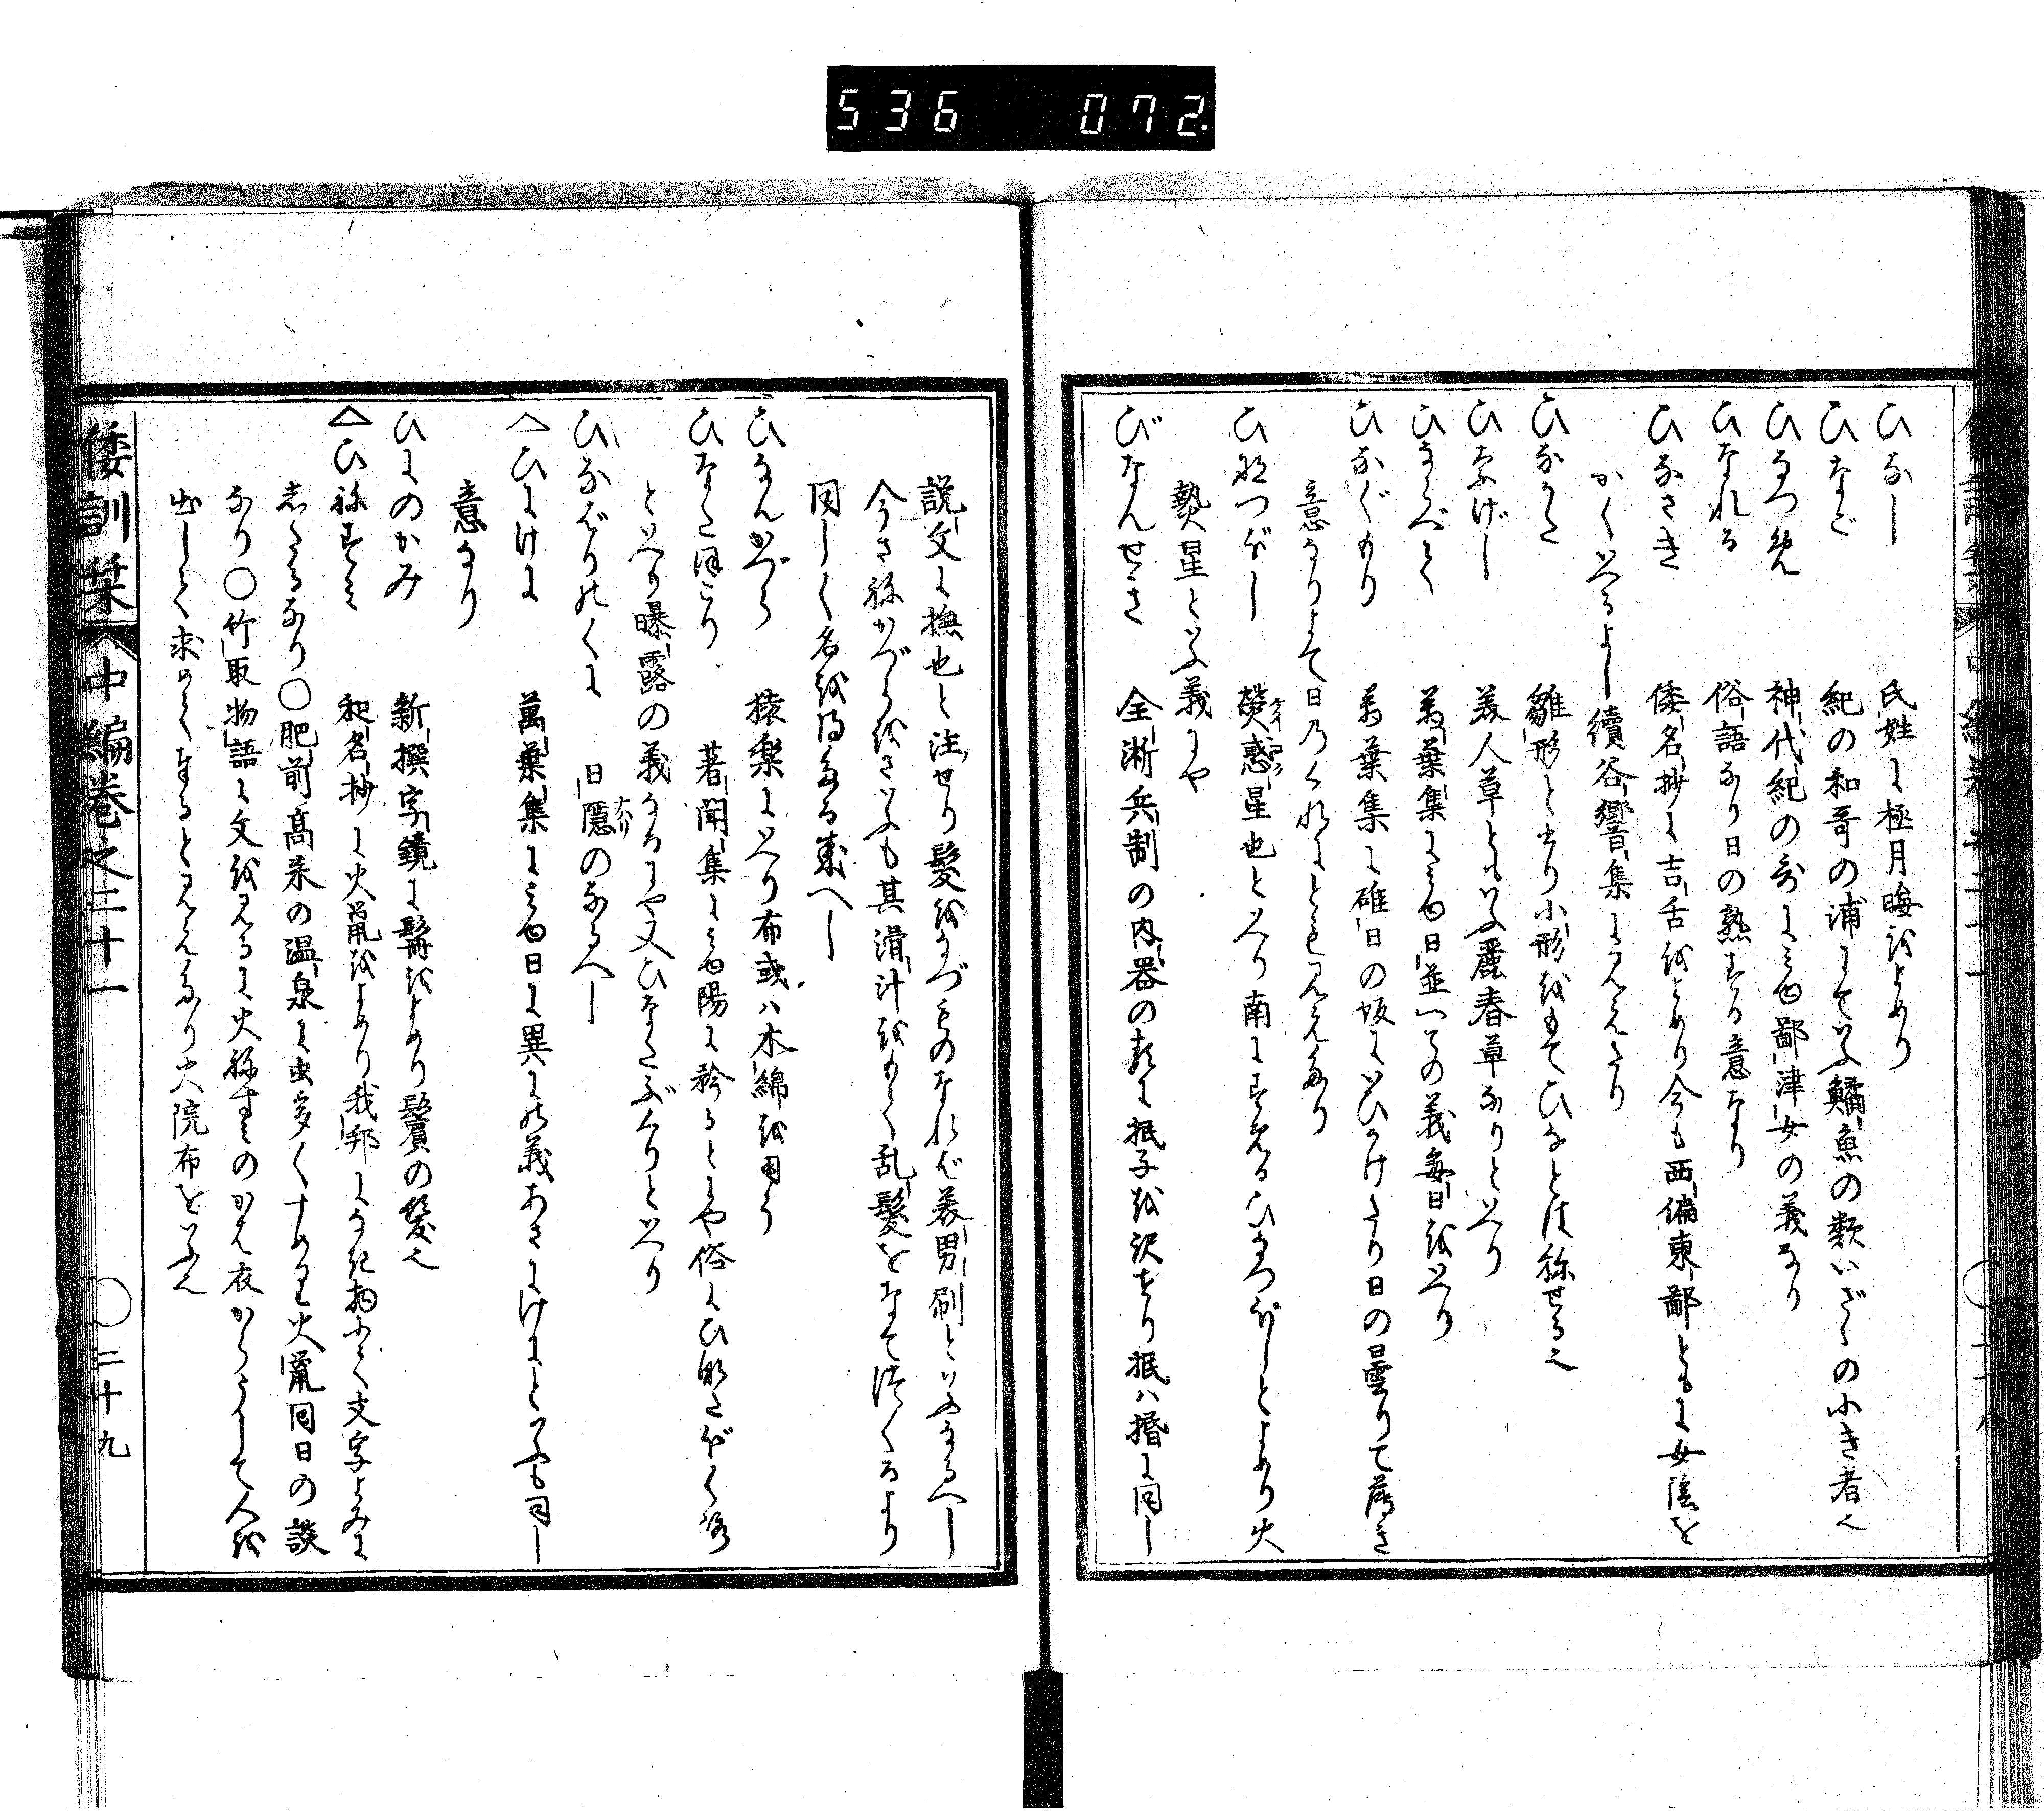 536 072.
ひなし 氏姓に極月晦をよめり
ひなご 紀の和哥の浦にていふ鱊魚の類いざゝの小き者也
ひなつめ 神代紀の哥にみゆ鄙津女の義なり
ひなれる 俗語なり日の熟する意なり
ひなさき 倭名抄に吉舌をよめり今も西偏東鄙ともに女陰を
かくいへるよし續谷響集に見えたり
ひながた 雛形と書り小形をもてひなと法称せる也
ひなげし 美人草ともいふ麗春草なりといへり
ひならべて 萬葉集にみゆ日並べての義毎日をいへり
ひなぐもり 萬葉集に碓日の坂にいひかけたり日の曇りて薄き
意なりよて日乃くれにとも見えたり
ひなつぼし 熒惑星也といへり南にすゑるひなつぼしとよめり火
熱星といふ義にや
びなんせき 全淅兵制の内器の類に抿子を沢せり抿ハ捪に同し
説文に撫也と注せり髪をなづるものなれば美男刷といふなるへし
今さねかづらをさいふも其滑汁をもて乱髪をなて つくるより
同しく名を得たる成へし
ひなんかづら 猿楽にいへり布或ハ木綿を用う
ひなたほこり 著聞集にみゆ陽に矜るとにや俗にひなたぼくろ
といへり曝露の義なるにや又ひなたぶくりといへり
ひなばりのくに 日隠の なるへし
へひにけに 萬葉集にみゆ日に異にの義あさにけにといふも同し
意なり
ひにのかみ 新撰字鏡に髯をよめり鬢の髪也
△ひねずみ 和名抄に火鼠をよめり我邦になき物ふて文字よみに
したるなり〇肥前高来の温泉に虫多くすめり火鼠同日の談
なり〇竹取物語に文を見るに火ねずみのかは衣からうして人を
出して求めて奉ると見えたり火浣布をいふ也
倭訓栞 中編巻之二十一 〇二十九